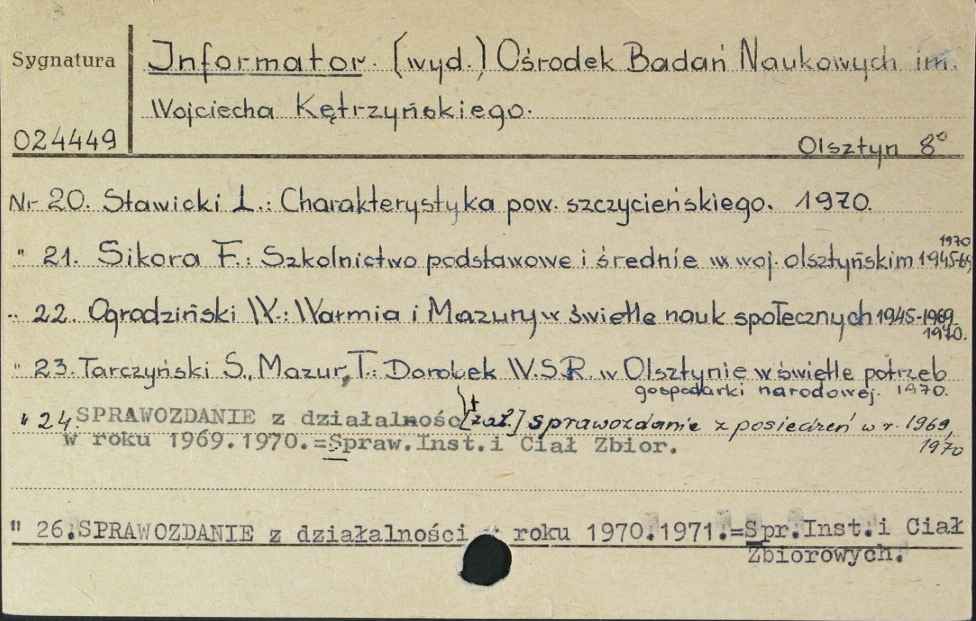 Sygnatura
Informator. (wyd.) Ośrodek Badań Naukowych im.
Wojciecha Kętrzyńskiego.
024449
Olsztyn 8°
Nr 20. Sławicki L.: Charakterystyka pow. szczycieńskiego. 1970.
" 21. Sikora F.: Szkolnictwo podstawowe i średnie w woj. olsztyńskim 1945-69
1970
" 22. Ogrodziński W.: Warmia i Mazury w świetle nauk społecznych 1945-1969.
1970.
" 23. Tarczyński S., Mazur, T.: Dorobek W.S.R. w Olsztynie w świetle potrzeb
gospodarki narodowej. 1970.
" 24. SPRAWOZDANIE z działalnośc [+ zał.] sprawozdanie z posiedzeń w r. 1969,
w roku 1969.1970.=Spraw.Inst.i Ciał Zbior. 1970
" 26.SPRAWOZDANIE z działalności w roku 1970.1971.=Spr.Inst.i Ciał
Zbiorowych.